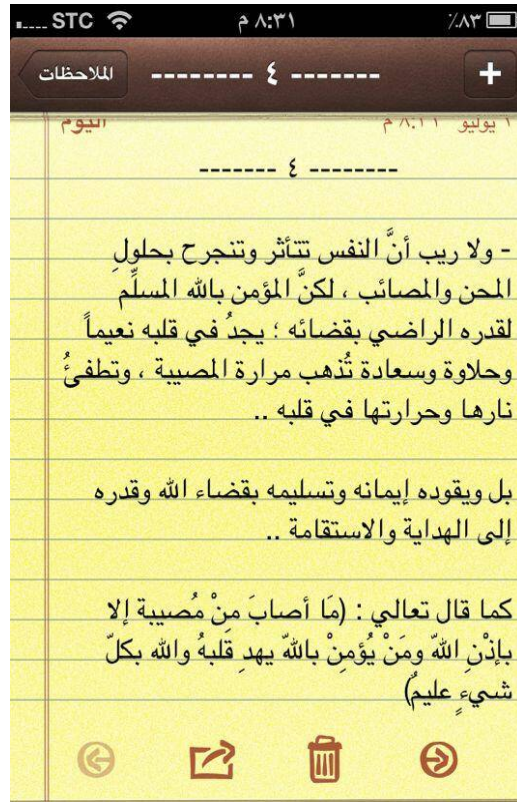 STC ٨:٣١ م ٪٨٣
الملاحظات -------- ٤ ------- +
اليوم ١ يوليو ٨:٢٦ م
------- ٤ --------
- ولا ريب أنَّ النفس تتأثر وتنجرح بحلولِ
المحن والمصائب ، لكنَّ المؤمن بالله المسلِّم
لقدره الراضي بقضائه ؛ يجدُ في قلبه نعيماً
وحلاوة وسعادة تُذهب مرارة المصيبة ، وتطفئُ
نارها وحرارتها في قلبه ..
بل ويقوده إيمانه وتسليمه بقضاء الله وقدره
إلى الهداية والاستقامة ..
كما قال تعالى : (مَا أصابَ منْ مُصيبة إلا
بإذْنِ اللهِّ ومَنْ يُؤمنْ باللهِّ يهدِ قَلبهُ والله بكلّ
شيءٍ عليمٌ)